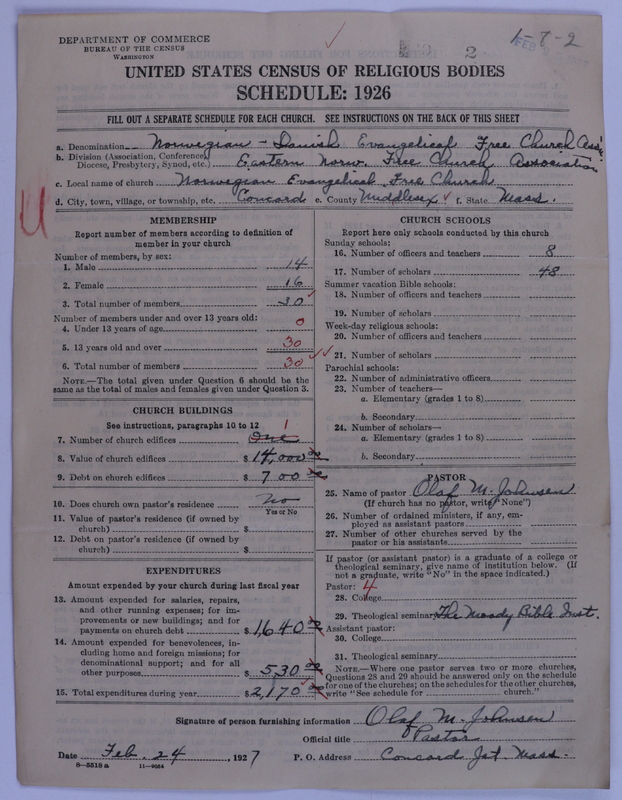 DEPARTMENT OF COMMERCE
BUREAU OF THE CENSUS
WASHINGTON
1-7-2
2
FEB
UNITED STATES CENSUS OF RELIGIOUS BODIES
SCHEDULE: 1926
FILL OUT A SEPARATE SCHEDULE FOR EACH CHURCH. SEE INSTRUCTIONS ON THE BACK OF THIS SHEET
a. Denomination Norwegian - Danish Evangelical Free Church Ass'n
b. Division (Association, Conference, Diocese, Presbytery, Synod, etc.) Eastern Norw. Free Church Association
c. Local name of church Norwegian Evangelical Free Church
d. City, town, village, or township, etc. Concord e. County Middlesex f. State Mass.
MEMBERSHIP
Report number of members according to definition of
member in your church
Number of members, by sex:
1. Male 14
2. Female 16
3. Total number of members 30
Number of members under and over 13 years old:
4. Under 13 years of age 0
5. 13 years old and over 30
6. Total number of members 30
NOTE.—The total given under Question 6 should be the
same as the total of males and females given under Question 3.
CHURCH BUILDINGS
See instructions, paragraphs 10 to 12
7. Number of church edifices One 1
8. Value of church edifices $ 14,000 00
9. Debt on church edifices $ 700 00
10. Does church own pastor's residence No
Yes or No
11. Value of pastor's residence (if owned by
church) $
12. Debt on pastor's residence (if owned by
church) $
EXPENDITURES
Amount expended by your church during last fiscal year
13. Amount expended for salaries, repairs,
and other running expenses; for im-
provements or new buildings; and for
payments on church debt $ 1,640 00
14. Amount expended for benevolences, in-
cluding home and foreign missions; for
denominational support; and for all
other purposes $ 530 00
15. Total expenditures during year $ 2,170 00
CHURCH SCHOOLS
Report here only schools conducted by this church
Sunday schools:
16. Number of officers and teachers 8
17. Number of scholars 48
Summer vacation Bible schools:
18. Number of officers and teachers
19. Number of scholars
Week-day religious schools:
20. Number of officers and teachers
21. Number of scholars
Parochial schools:
22. Number of administrative officers
23. Number of teachers—
a. Elementary (grades 1 to 8)
b. Secondary
24. Number of scholars—
a. Elementary (grades 1 to 8)
b. Secondary
PASTOR
25. Name of pastor Olaf M. Johnsen
(If church has no pastor, write "None")
26. Number of ordained ministers, if any, em-
ployed as assistant pastors
27. Number of other churches served by the
pastor or his assistants
If pastor (or assistant pastor) is a graduate of a college or
theological seminary, give name of institution below. (If
not a graduate, write "No" in the space indicated.)
Pastor: 4
28. College
29. Theological seminary The Moody Bible Inst.
Assistant pastor:
30. College
31. Theological seminary
NOTE.—Where one pastor serves two or more churches,
Questions 28 and 29 should be answered only on the schedule
for one of the churches; on the schedules for the other churches,
write "See schedule for church."
Signature of person furnishing information Olaf M. Johnsen
Official title Pastor
Date Feb. 24, 1927 P. O. Address Concord Jct. Mass.
8—5518 a 11—9024